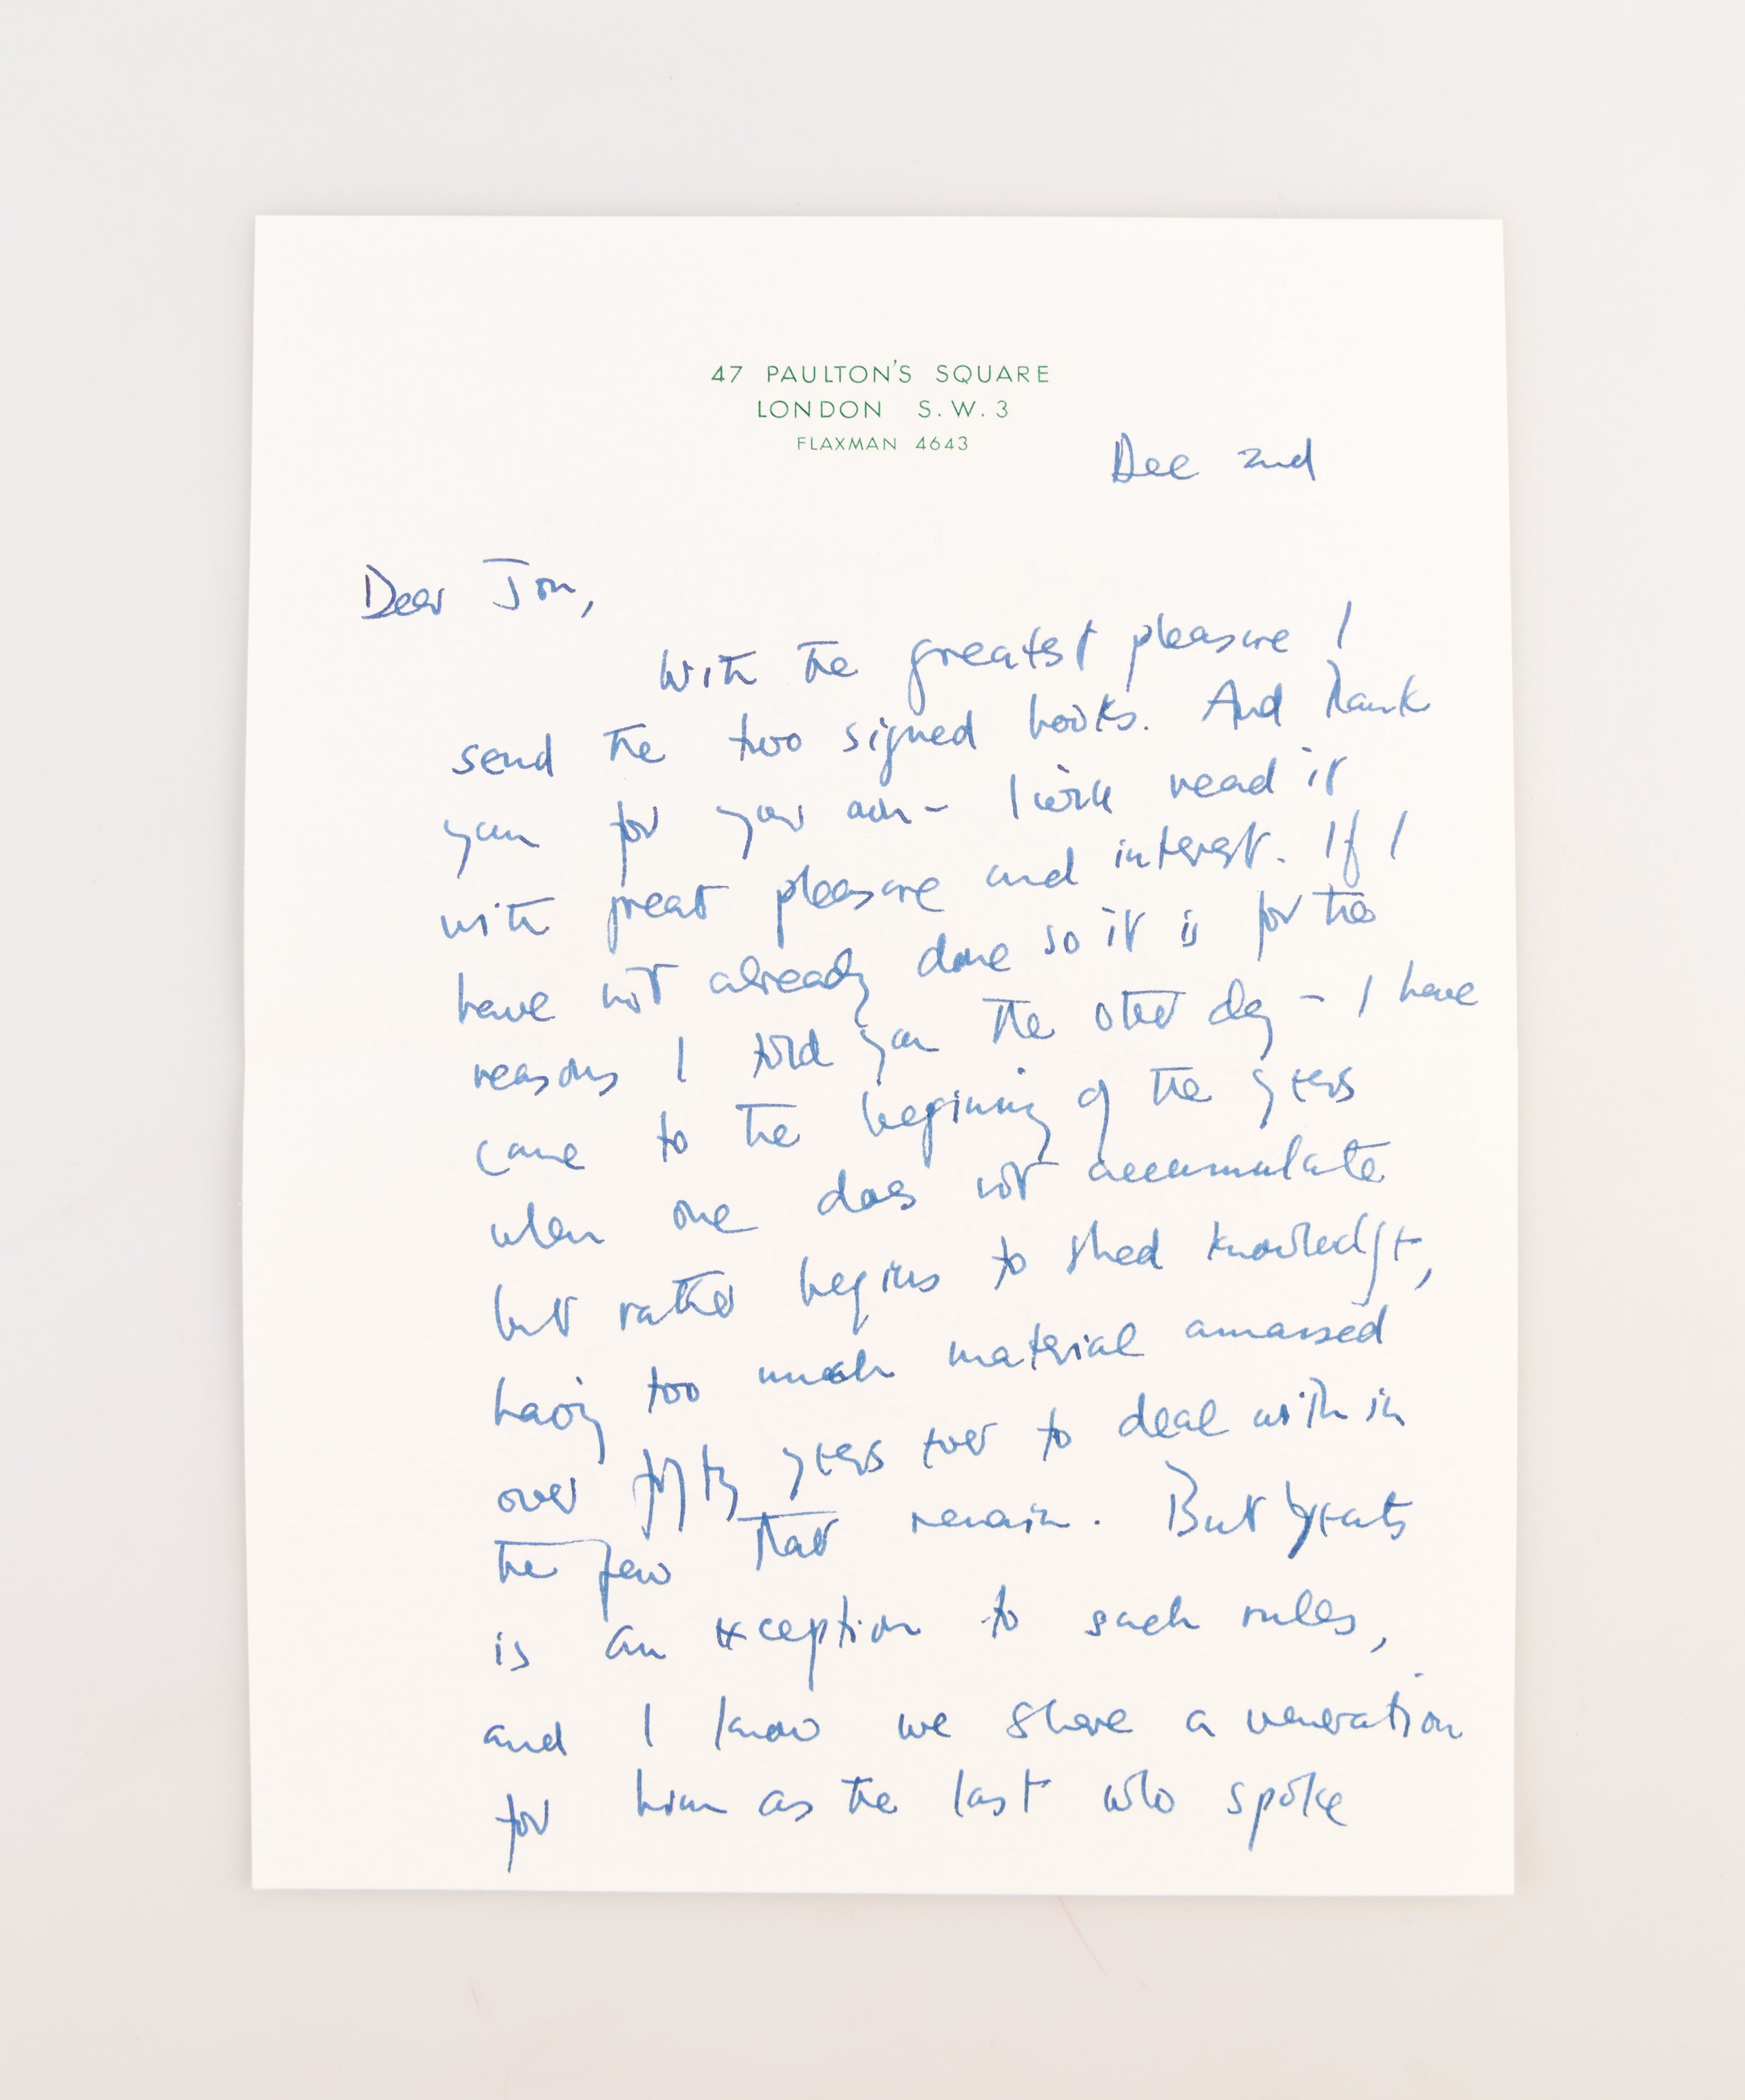 47 PAULTON'S SQUARE
LONDON S.W.3
FLAXMAN 4643
Dec 2nd
Dear Jon,
With the greatest pleasure I
send the two signed books. And thank
you for your own – I will read it
with great pleasure and interest. If I
have not already done so it is for the
reasons I told you the other day – I have
come to the beginning of the years
when one does not accumulate
but rather begins to shed knowledge,
having too much material amassed
over fifty years ever to deal with in
the few that remain. But Yeats
is an exception to such rules,
and I know we share a veneration
for him as the last who spoke